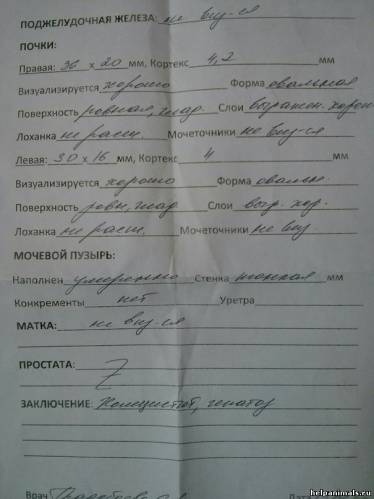 ПОДЖЕЛУДОЧНАЯ ЖЕЛЕЗА: не виз-ся
ПОЧКИ:
Правая: 36 х 20 мм, Кортекс 4,2 мм
Визуализируется хорошо Форма овальная
Поверхность ровная, глад. Слои выражен. хорошо
Лоханка не расш. Мочеточники не виз-ся
Левая: 30 х 16 мм, Кортекс 4 мм
Визуализируется хорошо Форма овальн.
Поверхность ровн, глад Слои выр. хор.
Лоханка не расш. Мочеточники не виз
МОЧЕВОЙ ПУЗЫРЬ:
Наполнен умеренно Стенка тонкая мм
Конкременты нет Уретра
МАТКА: не виз-ся
ПРОСТАТА:
ЗАКЛЮЧЕНИЕ: Холецистит, гепатоз
Врач
helpanimals.ru